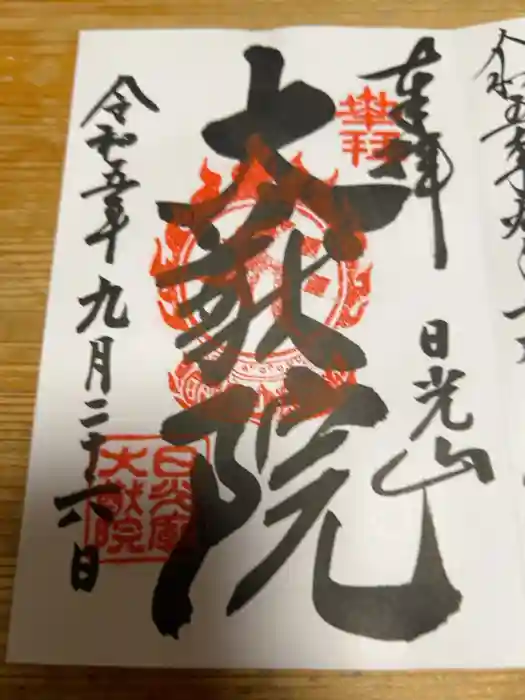 奉拝
日光山
大猷院
令和五年九月二十六日
奉拝
日光山
大猷院
令和五年